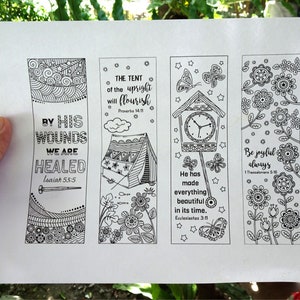 BY HIS
WOUNDS
WE ARE
HEALED
Isaiah 53:5
THE TENT
of the upright
will flourish
Proverbs 14:11
He has
made
everything
beautiful
in its time.
Ecclesiastes 3:11
Be joyful
always
1 Thessalonians 5:16